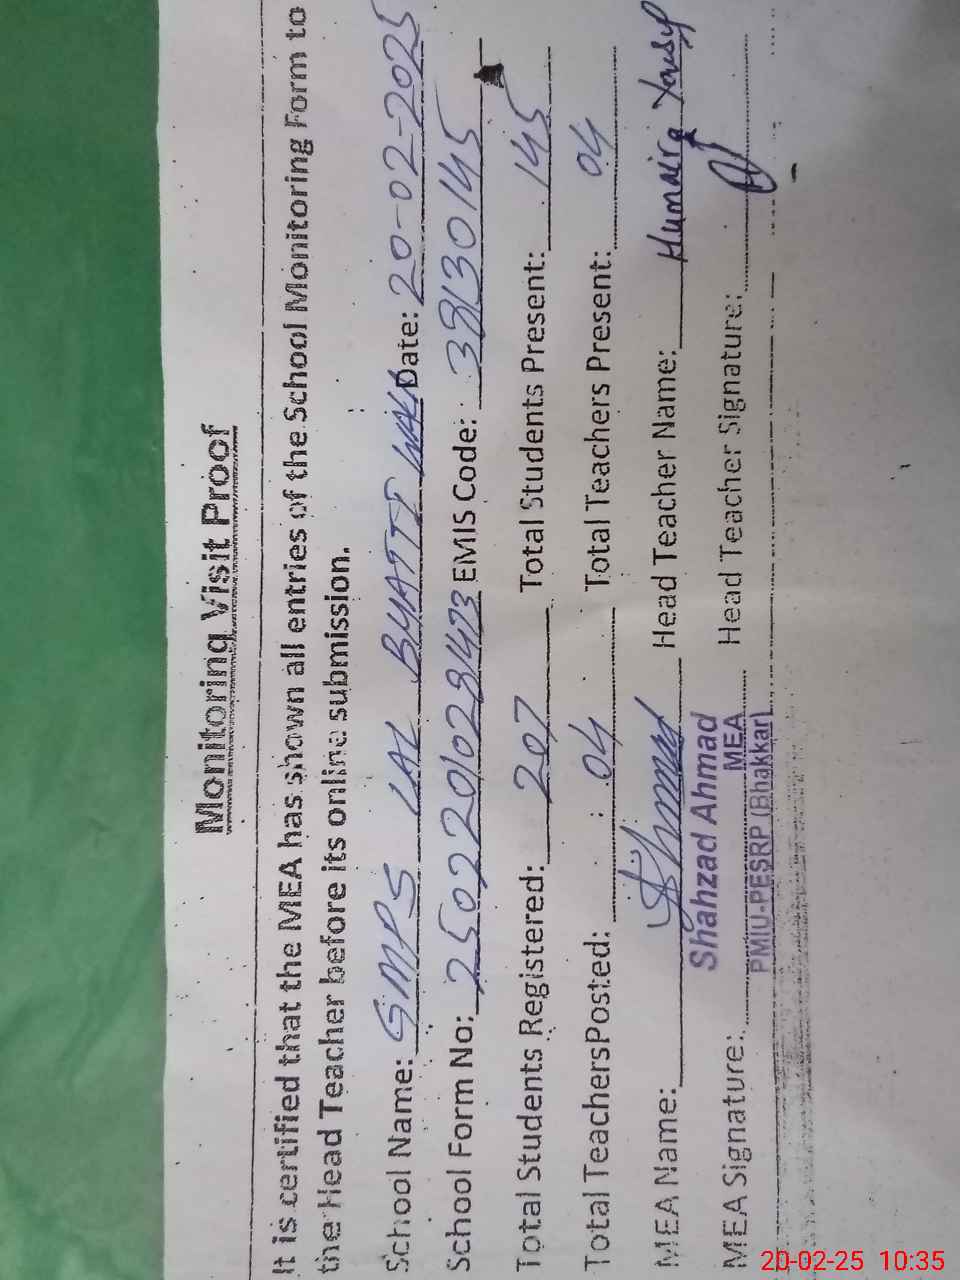 Monitoring Visit Proof
It is certified that the MEA has shown all entries of the School Monitoring Form to
the Head Teacher before its online submission.
School Name: GMPS LAL BHATTI WALA Date: 20-02-2025
School Form No: 25022010281473 EMIS Code: 38130145
Total Students Registered: 207 Total Students Present: 145
Total TeachersPosted: 04 Total Teachers Present: 04
MEA Name: Head Teacher Name: Humaira Yousf
Shahzad Ahmad
MEA
MEA Signature: PMIU-PESRP (Bhakkar) Head Teacher Signature:
20-02-25 10:35